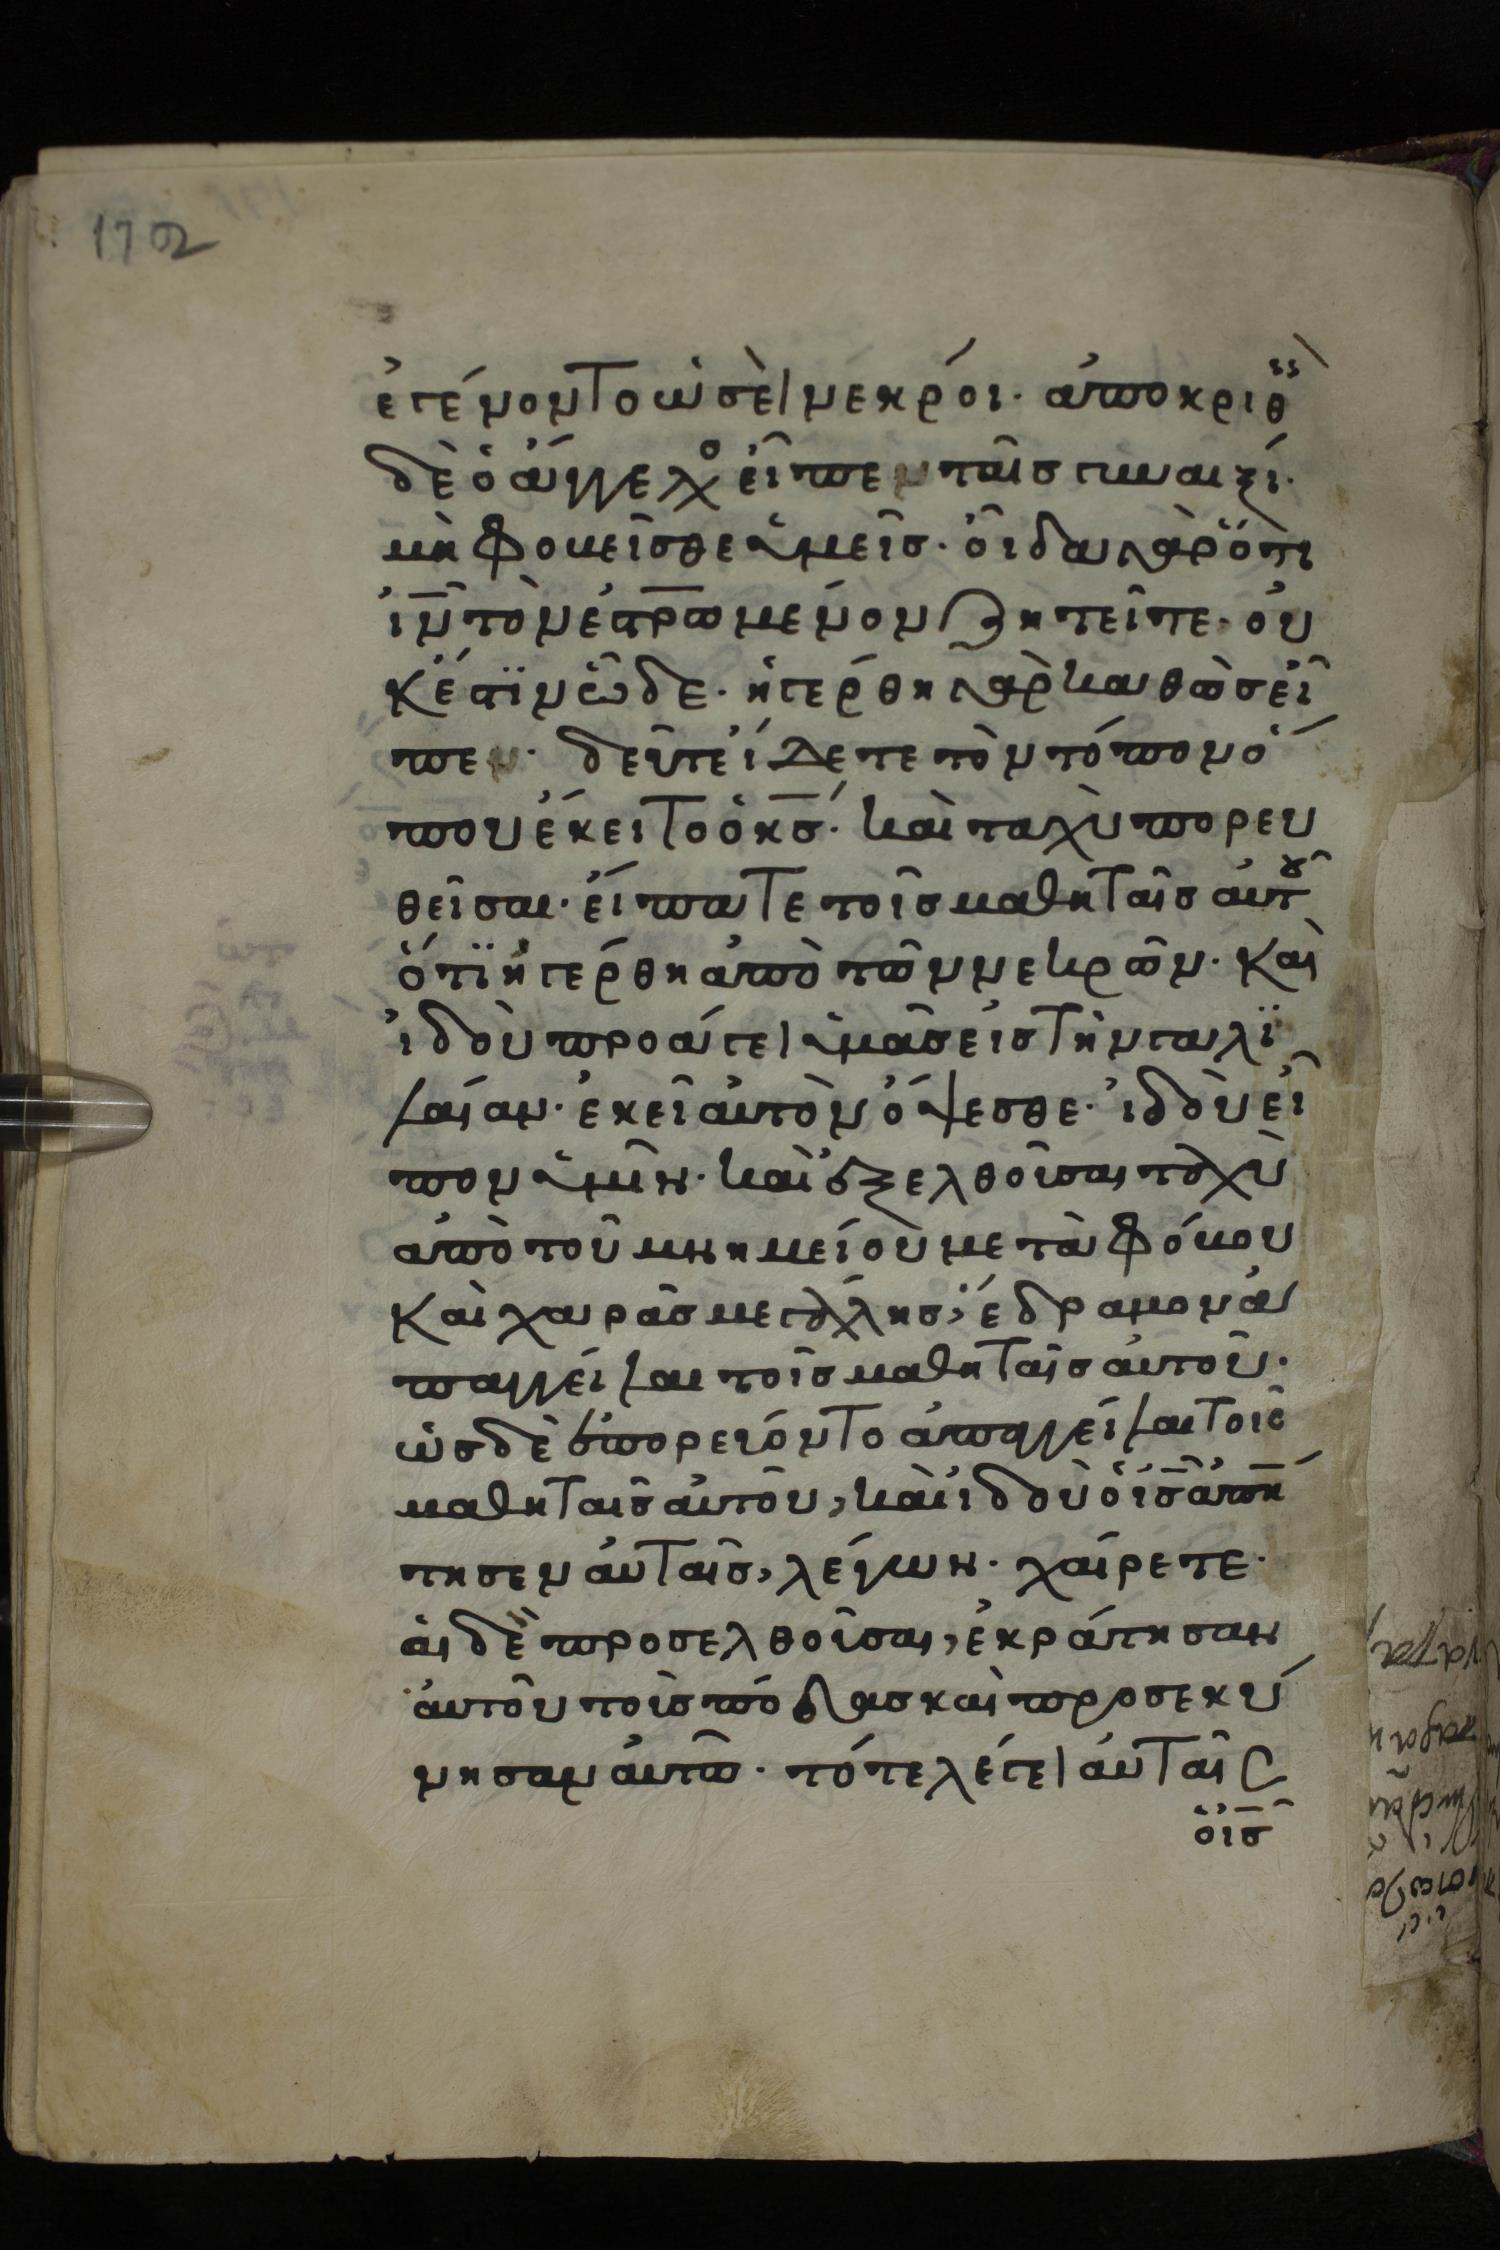 172
ἐγένοντο ὡσεὶ νεκρόι· ἀποκριθ
δὲ ὁ ἄγγελο εἶπεν ταῖσ γυναιξί·
μὴ φοβεῖσθε ὑμεῖσ· οἶδα γὰρ ὅτι
ἰν τὸν ἐστρωμένον ζητεῖτε· οὐ
κ ἔστιν ὧδε· ἠγέρθη γὰρ καθὼσ εἶ
πεν· δεῦτε ἴδετε τὸν τόπον ὅ
που ἔκειτο ὁ κσ· καὶ ταχὺ πορευ
θεῖσαι· εἴπατε τοῖσ μαθηταῖσ αὐτοῦ
ὅτι ἠγέρθη ἀπὸ τῶν νεκρῶν· καὶ
ἰδοὺ προάγει ὑμᾶσ εἰσ τὴν γαλι
λαίαν· ἐκεῖ αὐτὸν ὄψεσθε· ἰδοὺ εἶ
πον ὑμῖν· καὶ ἐξελθοῦσαι ταχὺ
ἀπὸ τοῦ μνημείου μετὰ φόβου
καὶ χαρᾶσ μεγάλησ, ἔδραμον ἀ
παγγεῖλαι τοῖσ μαθηταῖσ αὐτοῦ·
ὡσ δὲ ἐπορεύοντο ἀπαγγεῖλαι τοῖσ
μαθηταῖσ αὐτοῦ, καὶ ἰδοὺ ὁ ισ ἀπήν
τησεν αὐταῖσ, λέγων· χαίρετε·
αἱ δὲ προσελθοῦσαι, ἐκράτησαν
αὐτοῦ τοὺσ πόδασ καὶ προσεκύ
νησαν αὐτῶ· τότε λέγει αὐταῖσ
ὁ ισ